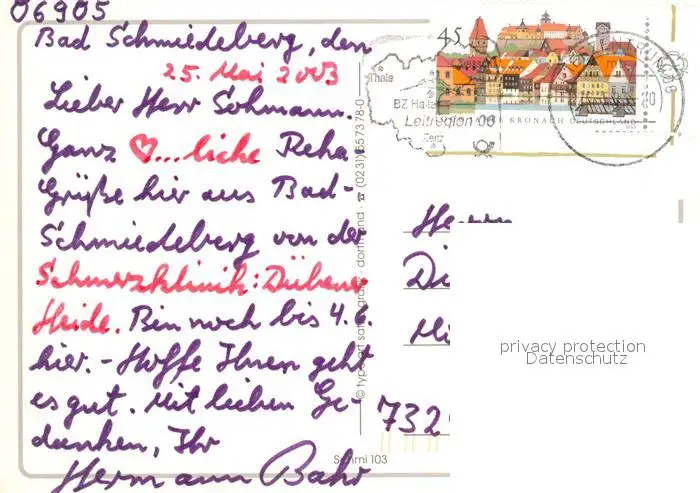 06905
Bad Schmiedeberg, den
25. Mai 2003
Lieber Herr Sohmann.
Ganz ♡...liche Reha-
Grüße hier aus Bad-
Schmiedeberg von der
Schmerzklinik: Dübener
Heide. Bin noch bis 4.6.
hier. - Hoffe Ihnen geht
es gut. Mit lieben Ge-
danken, Ihr
Hermann Bahr
45
Thale
BZ Halle
Leitregion 06
Zeitz
KRONACH DEUTSCHLAND
dortmund · ☎ (0231) 557378-0
Schmi 103
Herrn
Di
732
privacy protection
Datenschutz